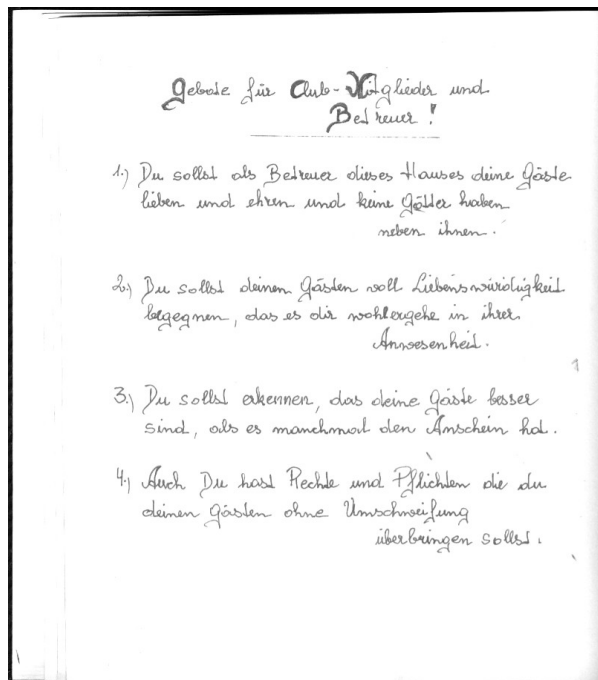 Gebote für Club-Mitglieder und
Betreuer!
1.) Du sollst als Betreuer dieses Hauses deine Gäste
lieben und ehren und keine Götter haben
neben ihnen.
2.) Du sollst deinen Gästen voll Liebenswürdigkeit
begegnen, das es dir wohlergehe in ihrer
Anwesenheit.
3.) Du sollst erkennen, das deine Gäste besser
sind, als es manchmal den Anschein hat.
4.) Auch Du hast Rechte und Pflichten die du
deinen Gästen ohne Umschweifung
überbringen sollst.